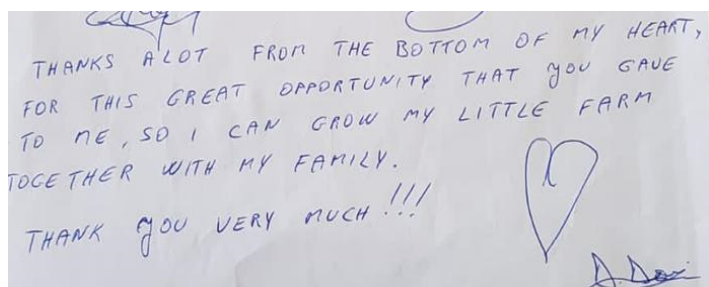 THANKS ALOT FROM THE BOTTOM OF MY HEART,
FOR THIS GREAT OPPORTUNITY THAT YOU GAVE
TO ME, SO I CAN GROW MY LITTLE FARM
TOGETHER WITH MY FAMILY.
THANK YOU VERY MUCH!!!